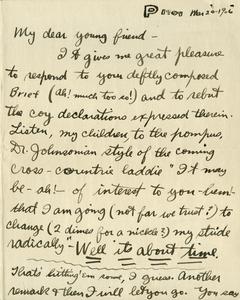 Mar 20-1926
My dear young friend -
It gives me great pleasure
to respond to your deftly composed
Brief (ah! much too so!) and to rebut
the coy declarations expressed therein.
Listen, my children to the pompus,
Dr. Johnsonian style of the coming
cross-countrie laddie "It may
be - ah! - of interest to you - hem! -
that I am going (not far we trust?) to
change (2 dimes for a nickel?) my stride
radically" - Well its about time.
Thats hitting 'em some, I guess. Another
remark & then I will let you go. You say